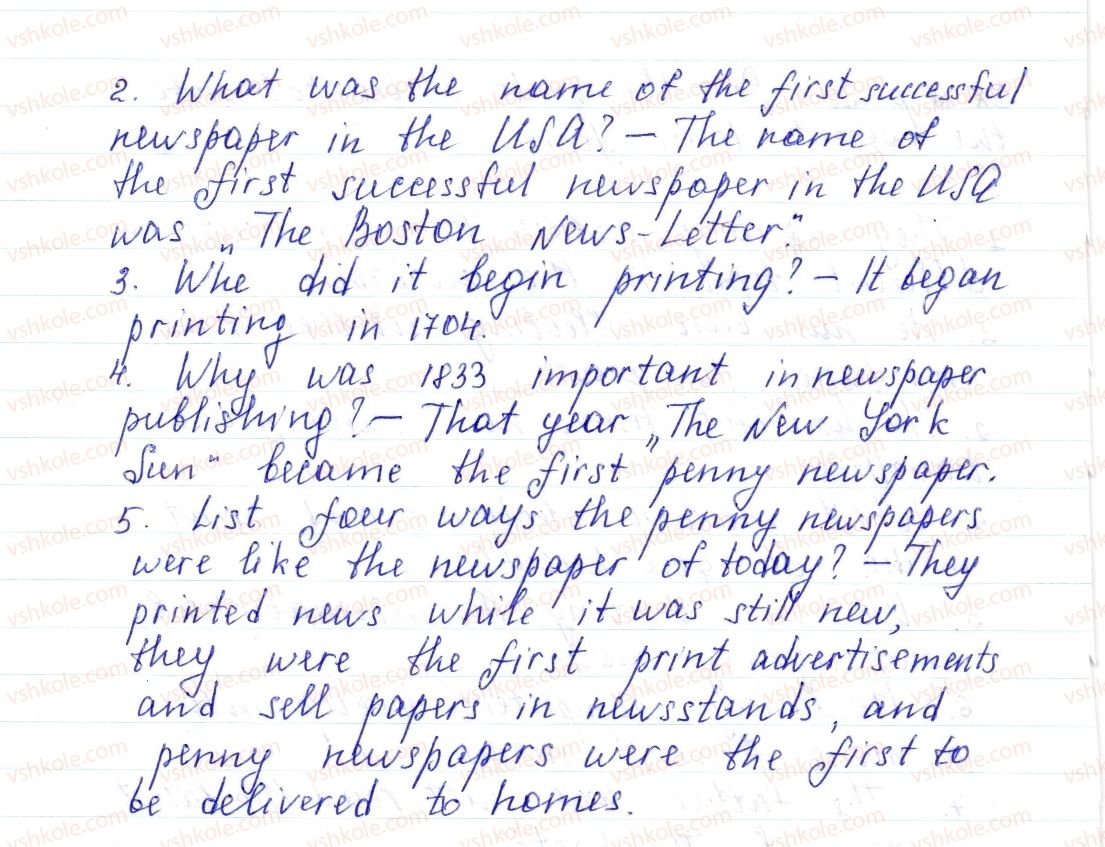 2. What was the name of the first successful
newspaper in the USA? – The name of
the first successful newspaper in the USA
was „The Boston News-Letter."
3. Whe did it begin printing? – It began
printing in 1704.
4. Why was 1833 important in newspaper
publishing? – That year „The New York
Sun" became the first penny newspaper.
5. List four ways the penny newspapers
were like the newspaper of today? – They
printed news while it was still new,
they were the first print advertisements
and sell papers in newsstands, and
penny newspapers were the first to
be delivered to homes.